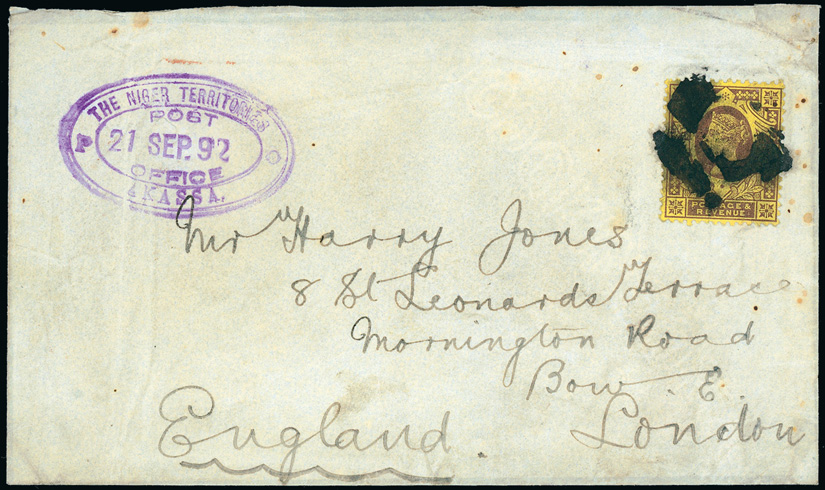 THE NIGER TERRITORIES
POST
P 21 SEP. 92 O
OFFICE
AKASSA.
POSTAGE &
REVENUE
Mr Harry Jones
8 St Leonards Terrace
Mornington Road
Bow. E.
England. London